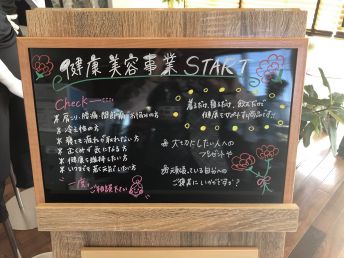 健康美容事業START
Check
肩こり、腰痛、関節痛でお悩みの方
冷え性の方
寝ても疲れが取れない方
むくみが気になる方
健康を維持したい方
いつまでも若々しくしたい方
一度ご相談下さい
着るだけ、寝るだけ、飲むだけで
健康をサポートする商品です!!
大切にしたい人への
プレゼントや
頑張っている自分への
ご褒美にいかがですか?